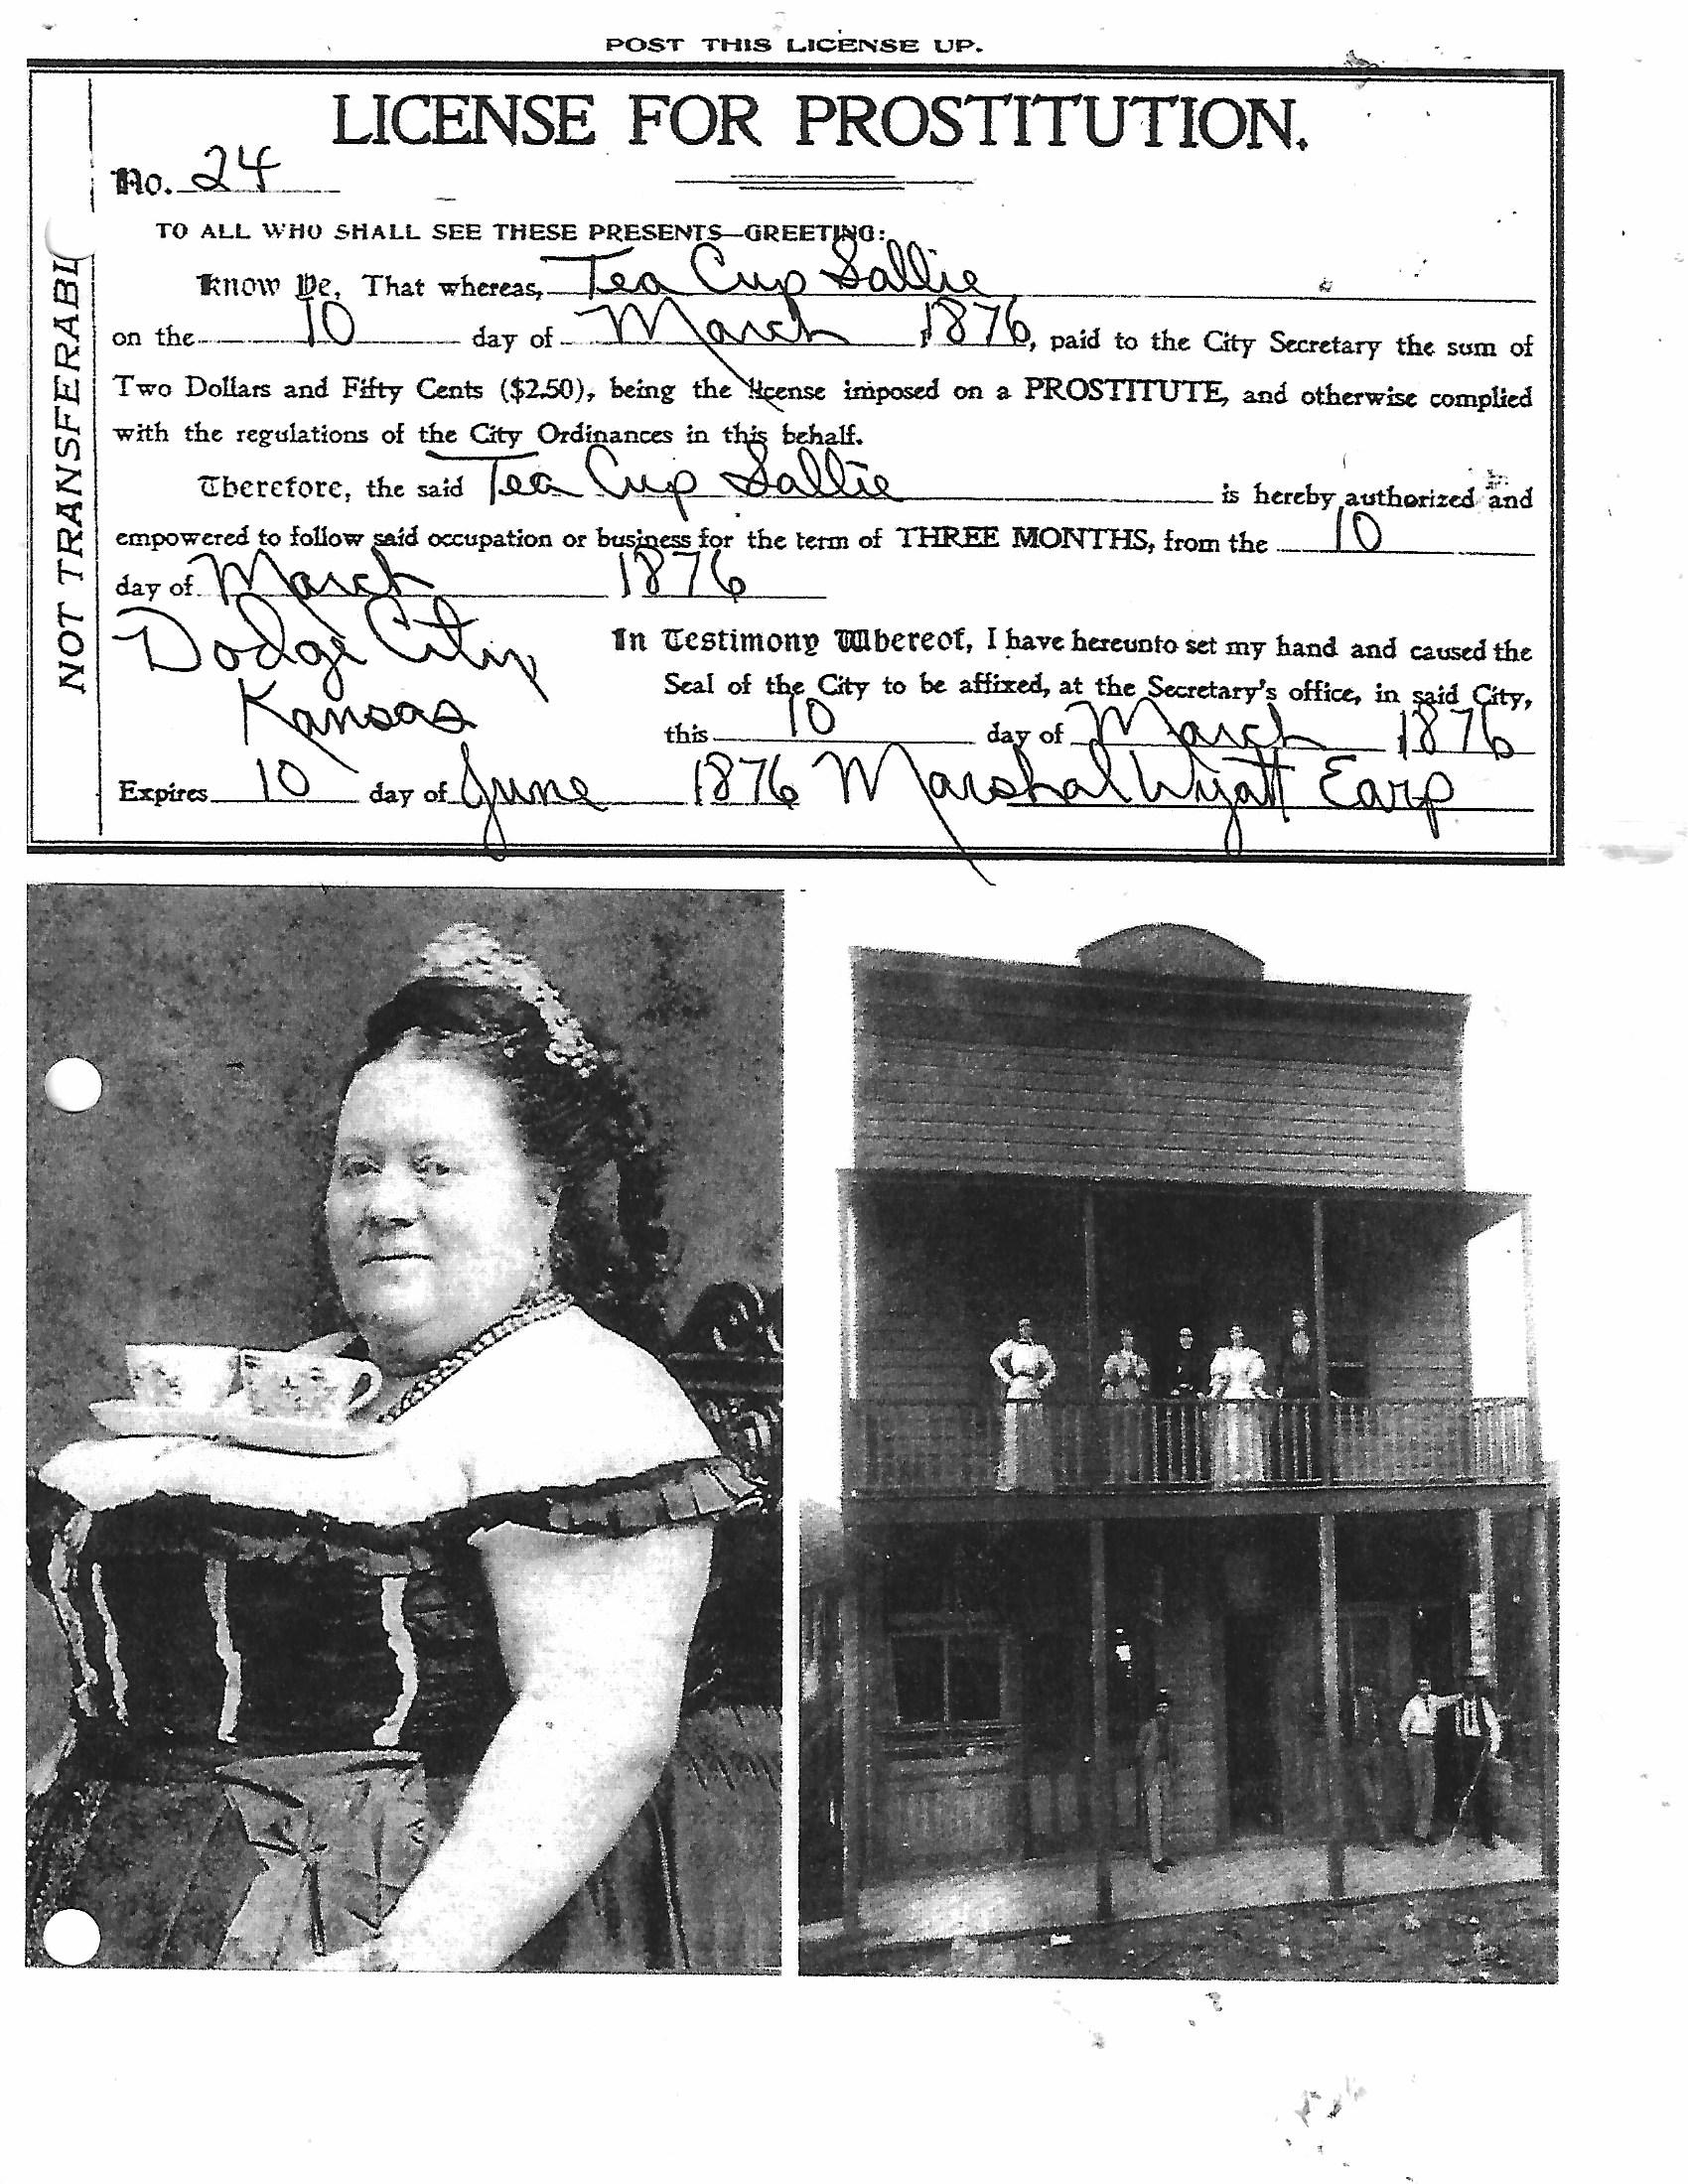 POST THIS LICENSE UP.
LICENSE FOR PROSTITUTION.
No. 24
TO ALL WHO SHALL SEE THESE PRESENTS—GREETING:
Know Ye, That whereas, Tea Cup Sallie
on the 10 day of March 1876, paid to the City Secretary the sum of
Two Dollars and Fifty Cents ($2.50), being the license imposed on a PROSTITUTE, and otherwise complied
with the regulations of the City Ordinances in this behalf.
Therefore, the said Tea Cup Sallie is hereby authorized and
empowered to follow said occupation or business for the term of THREE MONTHS, from the 10
day of March 1876
Dodge City
Kansas
In Testimony Whereof, I have hereunto set my hand and caused the
Seal of the City to be affixed, at the Secretary's office, in said City,
this 10 day of March 1876
Expires 10 day of June 1876 Marshal Wyatt Earp
NOT TRANSFERABL